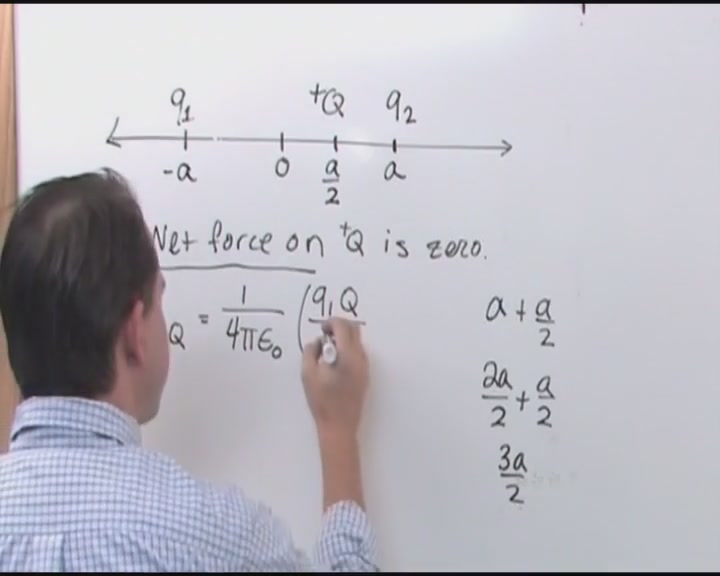 q₁ +Q q₂
-a 0 a/2 a
Net force on +Q is zero.
Q = 1/4πϵ₀ (q₁Q
a + a/2
2a/2 + a/2
3a/2